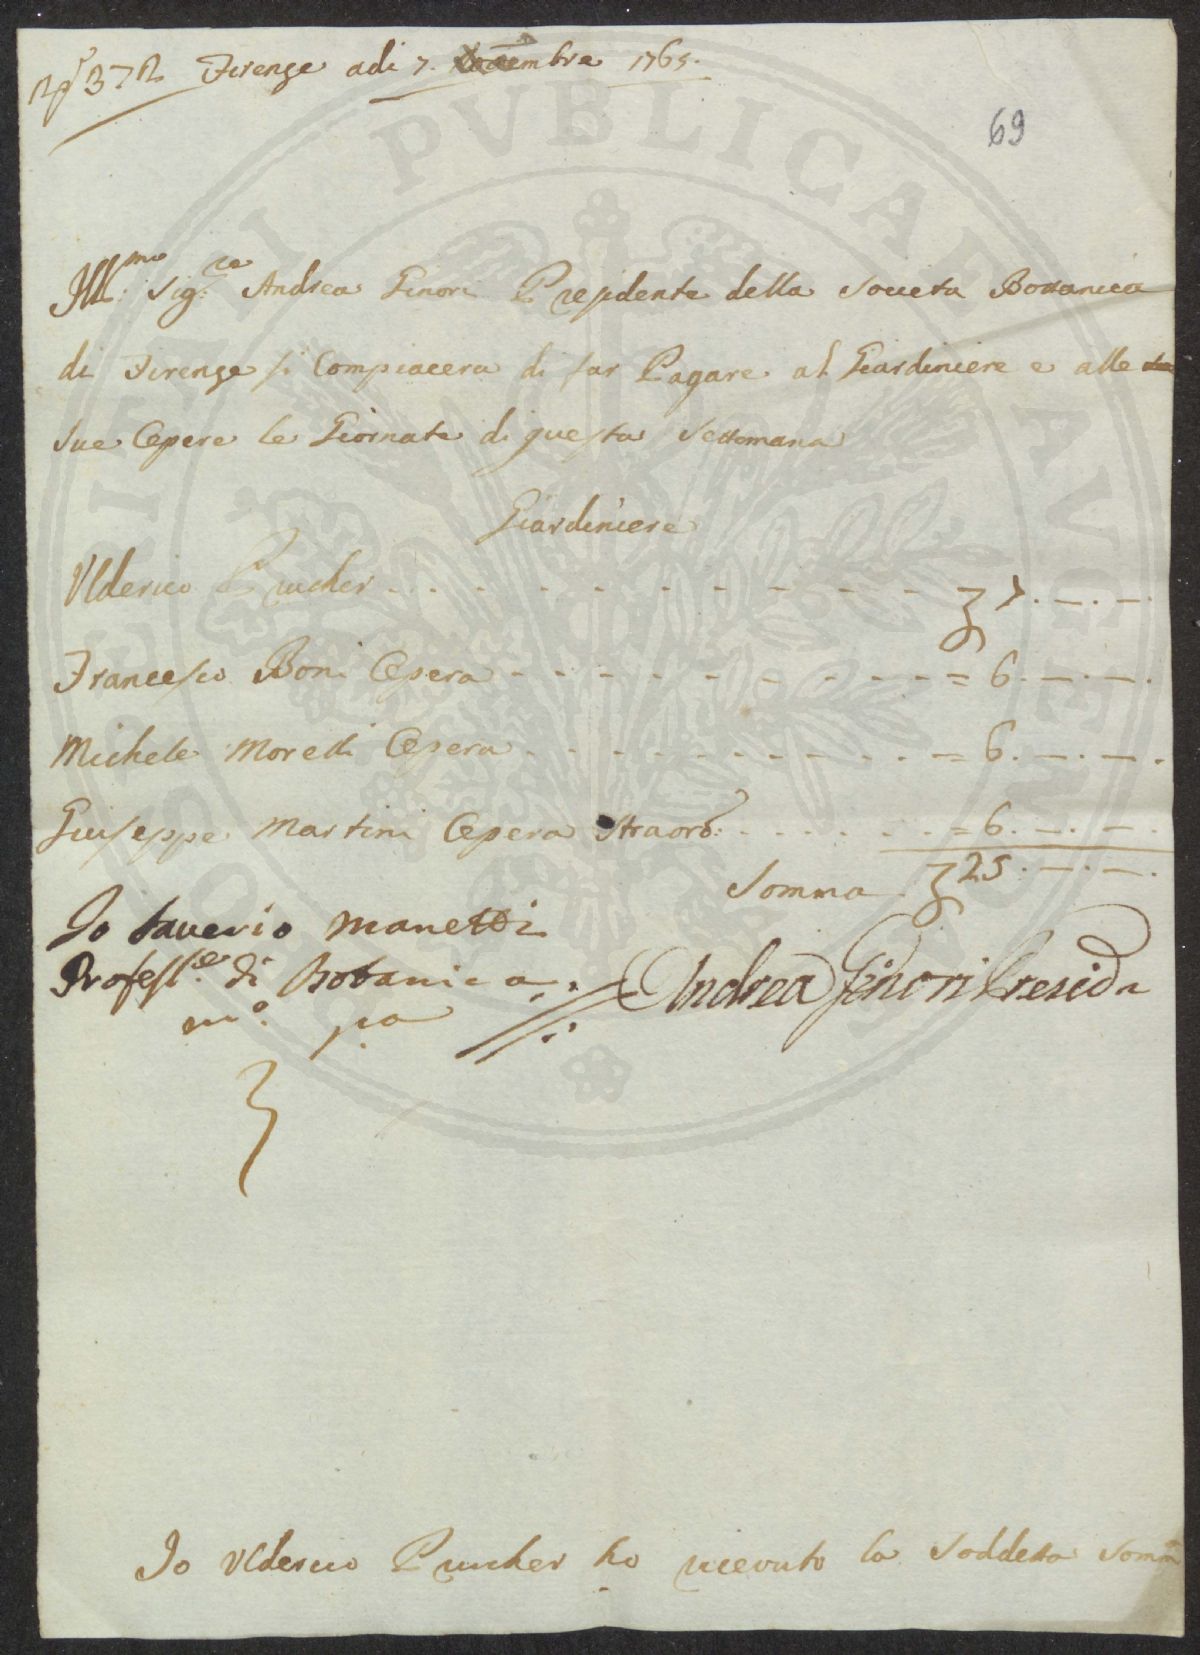 N° 372 Firenze adi 7. embre 1765.
69
Ill.mo Sig.re Andrea Ginori Presidente della Società Bottanica
di Firenze si Compiacera di far Pagare al Giardiniere e alle
sue Opere le Giornate di questa Settimana
Giardiniere
Ulderico Prucher - - - - - - - - - - 7. —. —
Francesco Boni Opera - - - - - - - - - = 6. —. —.
Michele Morelli Opera - - - - - - - - - = 6. —. —.
Giuseppe Martini Opera Straord: - - - - - - = 6. —. —.
Somma 25. —. —.
Io Saverio Manetti
Profess.re di Botanica
m.o p.a
Andrea Ginori Presid
Io Ulderico Prucher ho ricevuto la Soddetta Somm
PVBLICAE